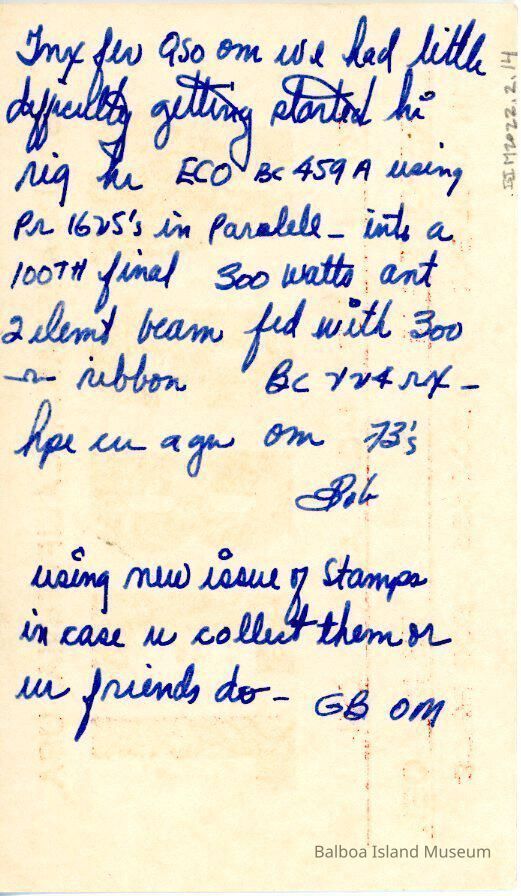 Tnx fer QSO om we had little
difficulty getting started hi
rig hr ECO BC 459A using
Pr 1625's in Paralell - into a
100TH final 300 watts ant
2 elemt beam fed with 300
ribbon BC 224 rx -
hpe cu agn om 73's
Bob
using new issue of Stamps
in case u collect them or
ur friends do - GB OM
BIM2022.2.14
Balboa Island Museum